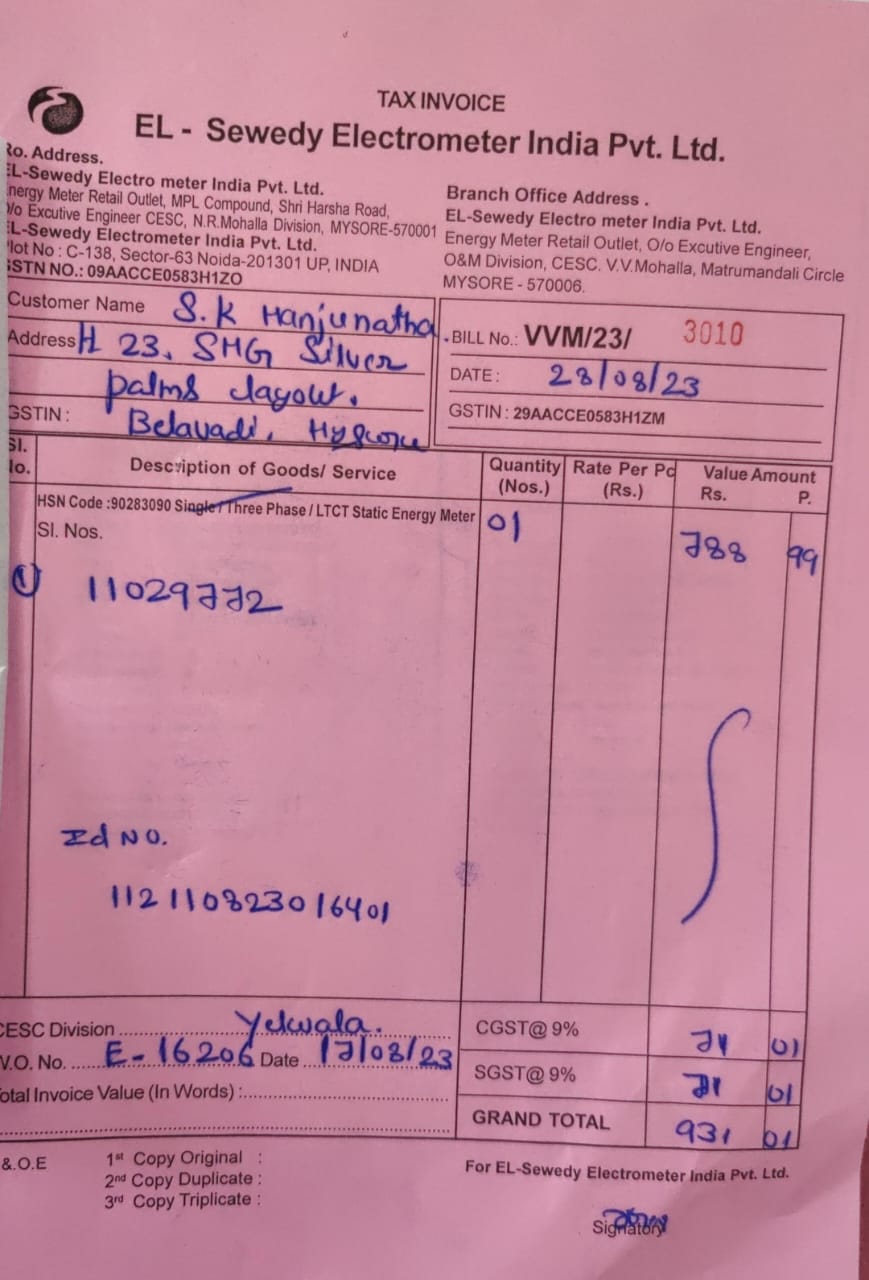 TAX INVOICE
EL - Sewedy Electrometer India Pvt. Ltd.
Ro. Address.
EL-Sewedy Electro meter India Pvt. Ltd.
Energy Meter Retail Outlet, MPL Compound, Shri Harsha Road,
O/o Excutive Engineer CESC, N.R.Mohalla Division, MYSORE-570001
EL-Sewedy Electrometer India Pvt. Ltd.
Plot No : C-138, Sector-63 Noida-201301 UP, INDIA
GSTN NO.: 09AACCE0583H1ZO
Branch Office Address .
EL-Sewedy Electro meter India Pvt. Ltd.
Energy Meter Retail Outlet, O/o Excutive Engineer,
O&M Division, CESC. V.V.Mohalla, Matrumandali Circle
MYSORE - 570006.
Customer Name S.K Manjunatha
Address H 23, SMG Silver
palms layout.
GSTIN : Belavadi, Mysore
BILL No.: VVM/23/ 3010
DATE : 28/08/23
GSTIN : 29AACCE0583H1ZM
Sl. No. Description of Goods/ Service Quantity (Nos.) Rate Per Pc (Rs.) Value Amount Rs. P.
HSN Code :90283090 Single / Three Phase / LTCT Static Energy Meter 01 788 99
Sl. Nos.
1) 11029772
Id NO.
112110823016401
CESC Division Yelwala.
W.O. No. E-16206 Date 17/08/23
Total Invoice Value (In Words) :
CGST@ 9% 71 01
SGST@ 9% 71 01
GRAND TOTAL 931 01
E.&.O.E
1st Copy Original :
2nd Copy Duplicate :
3rd Copy Triplicate :
For EL-Sewedy Electrometer India Pvt. Ltd.
Signatory